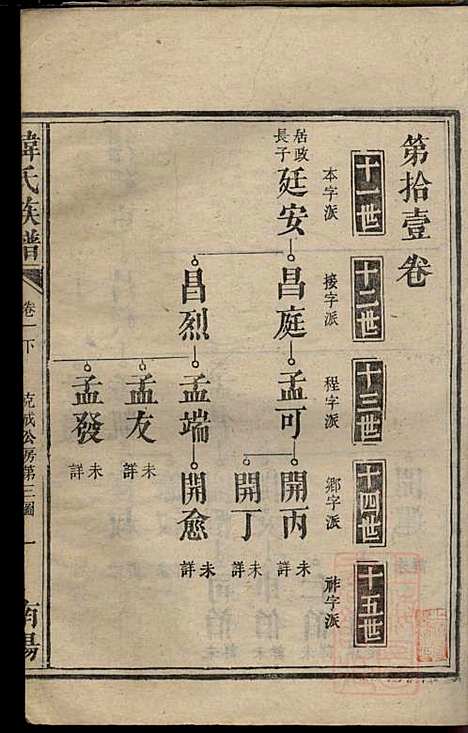 第拾壹卷
十一世
本字派
十二世
接字派
十三世
程字派
十四世
鄉字派
十五世
祚字派
居政
長子
廷安
昌庭
孟可
開丙
未詳
開丁
未詳
昌烈
孟端
開愈
未詳
孟友
未詳
孟發
未詳
韓氏族譜
卷一下
克成公房第三圖
一
南陽